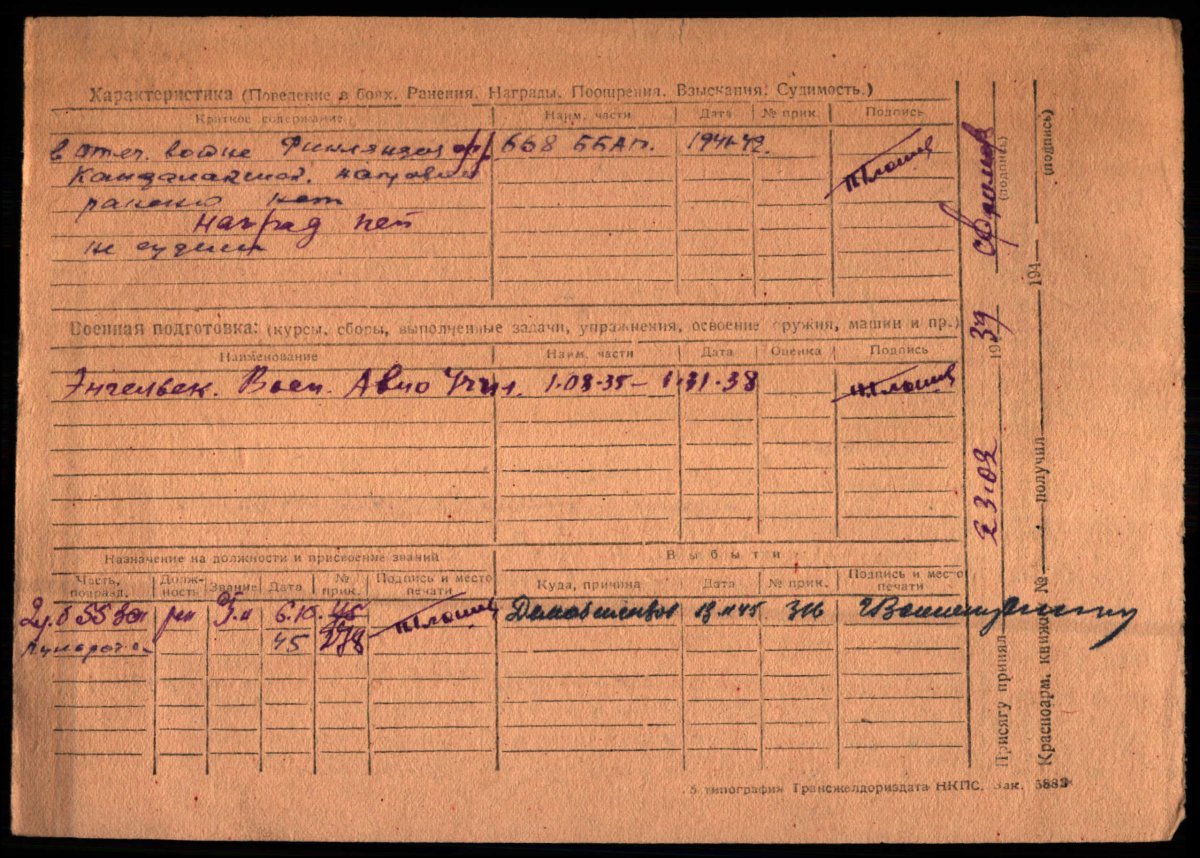 Характеристика (Поведение в боях. Ранения. Награды. Поощрения. Взыскания. Судимость.)
Краткое содержание Наим. части Дата № прик. Подпись
в отеч. войне Финляндск фр. 668 ББАП. 1941-42.
Кандалакшск. направлен
ранений нет
наград нет
не судим
Военная подготовка: (курсы, сборы, выполненные задачи, упражнения, освоение оружия, машин и пр.)
Наименование Наим. части Дата Оценка Подпись
Энгельсск. Воен. Авио Учил. 1.03.35 – 1.11.38
Назначение на должности и присвоение званий
Выбыти
Часть, подразд. Долж-ность Звание Дата № прик. Подпись и место печати
Куда, причина Дата № прик. Подпись и место печати
55 зсп 6.10.45
45 278
Демобилизован 13.11.45 316
5 типография Трансжелдориздата НКПС. Зак. 5882
Присягу принял 23.02 1939 (подпись)
Красноарм. книжку № получил 194 (подпись)